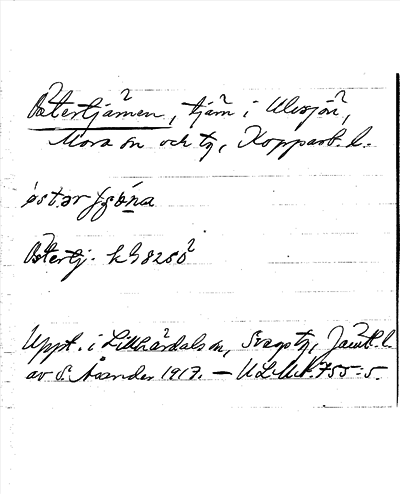 Östertjärnen, tjärn i Ulvsjön,
Mora sn och tg, Kopparb. l.
Östertj. k G 8250
Uppt. i Lillhärdals sn, Svegs tg, Jämtl. l.
av S. Åsander 1917. — ULMA 755:5.